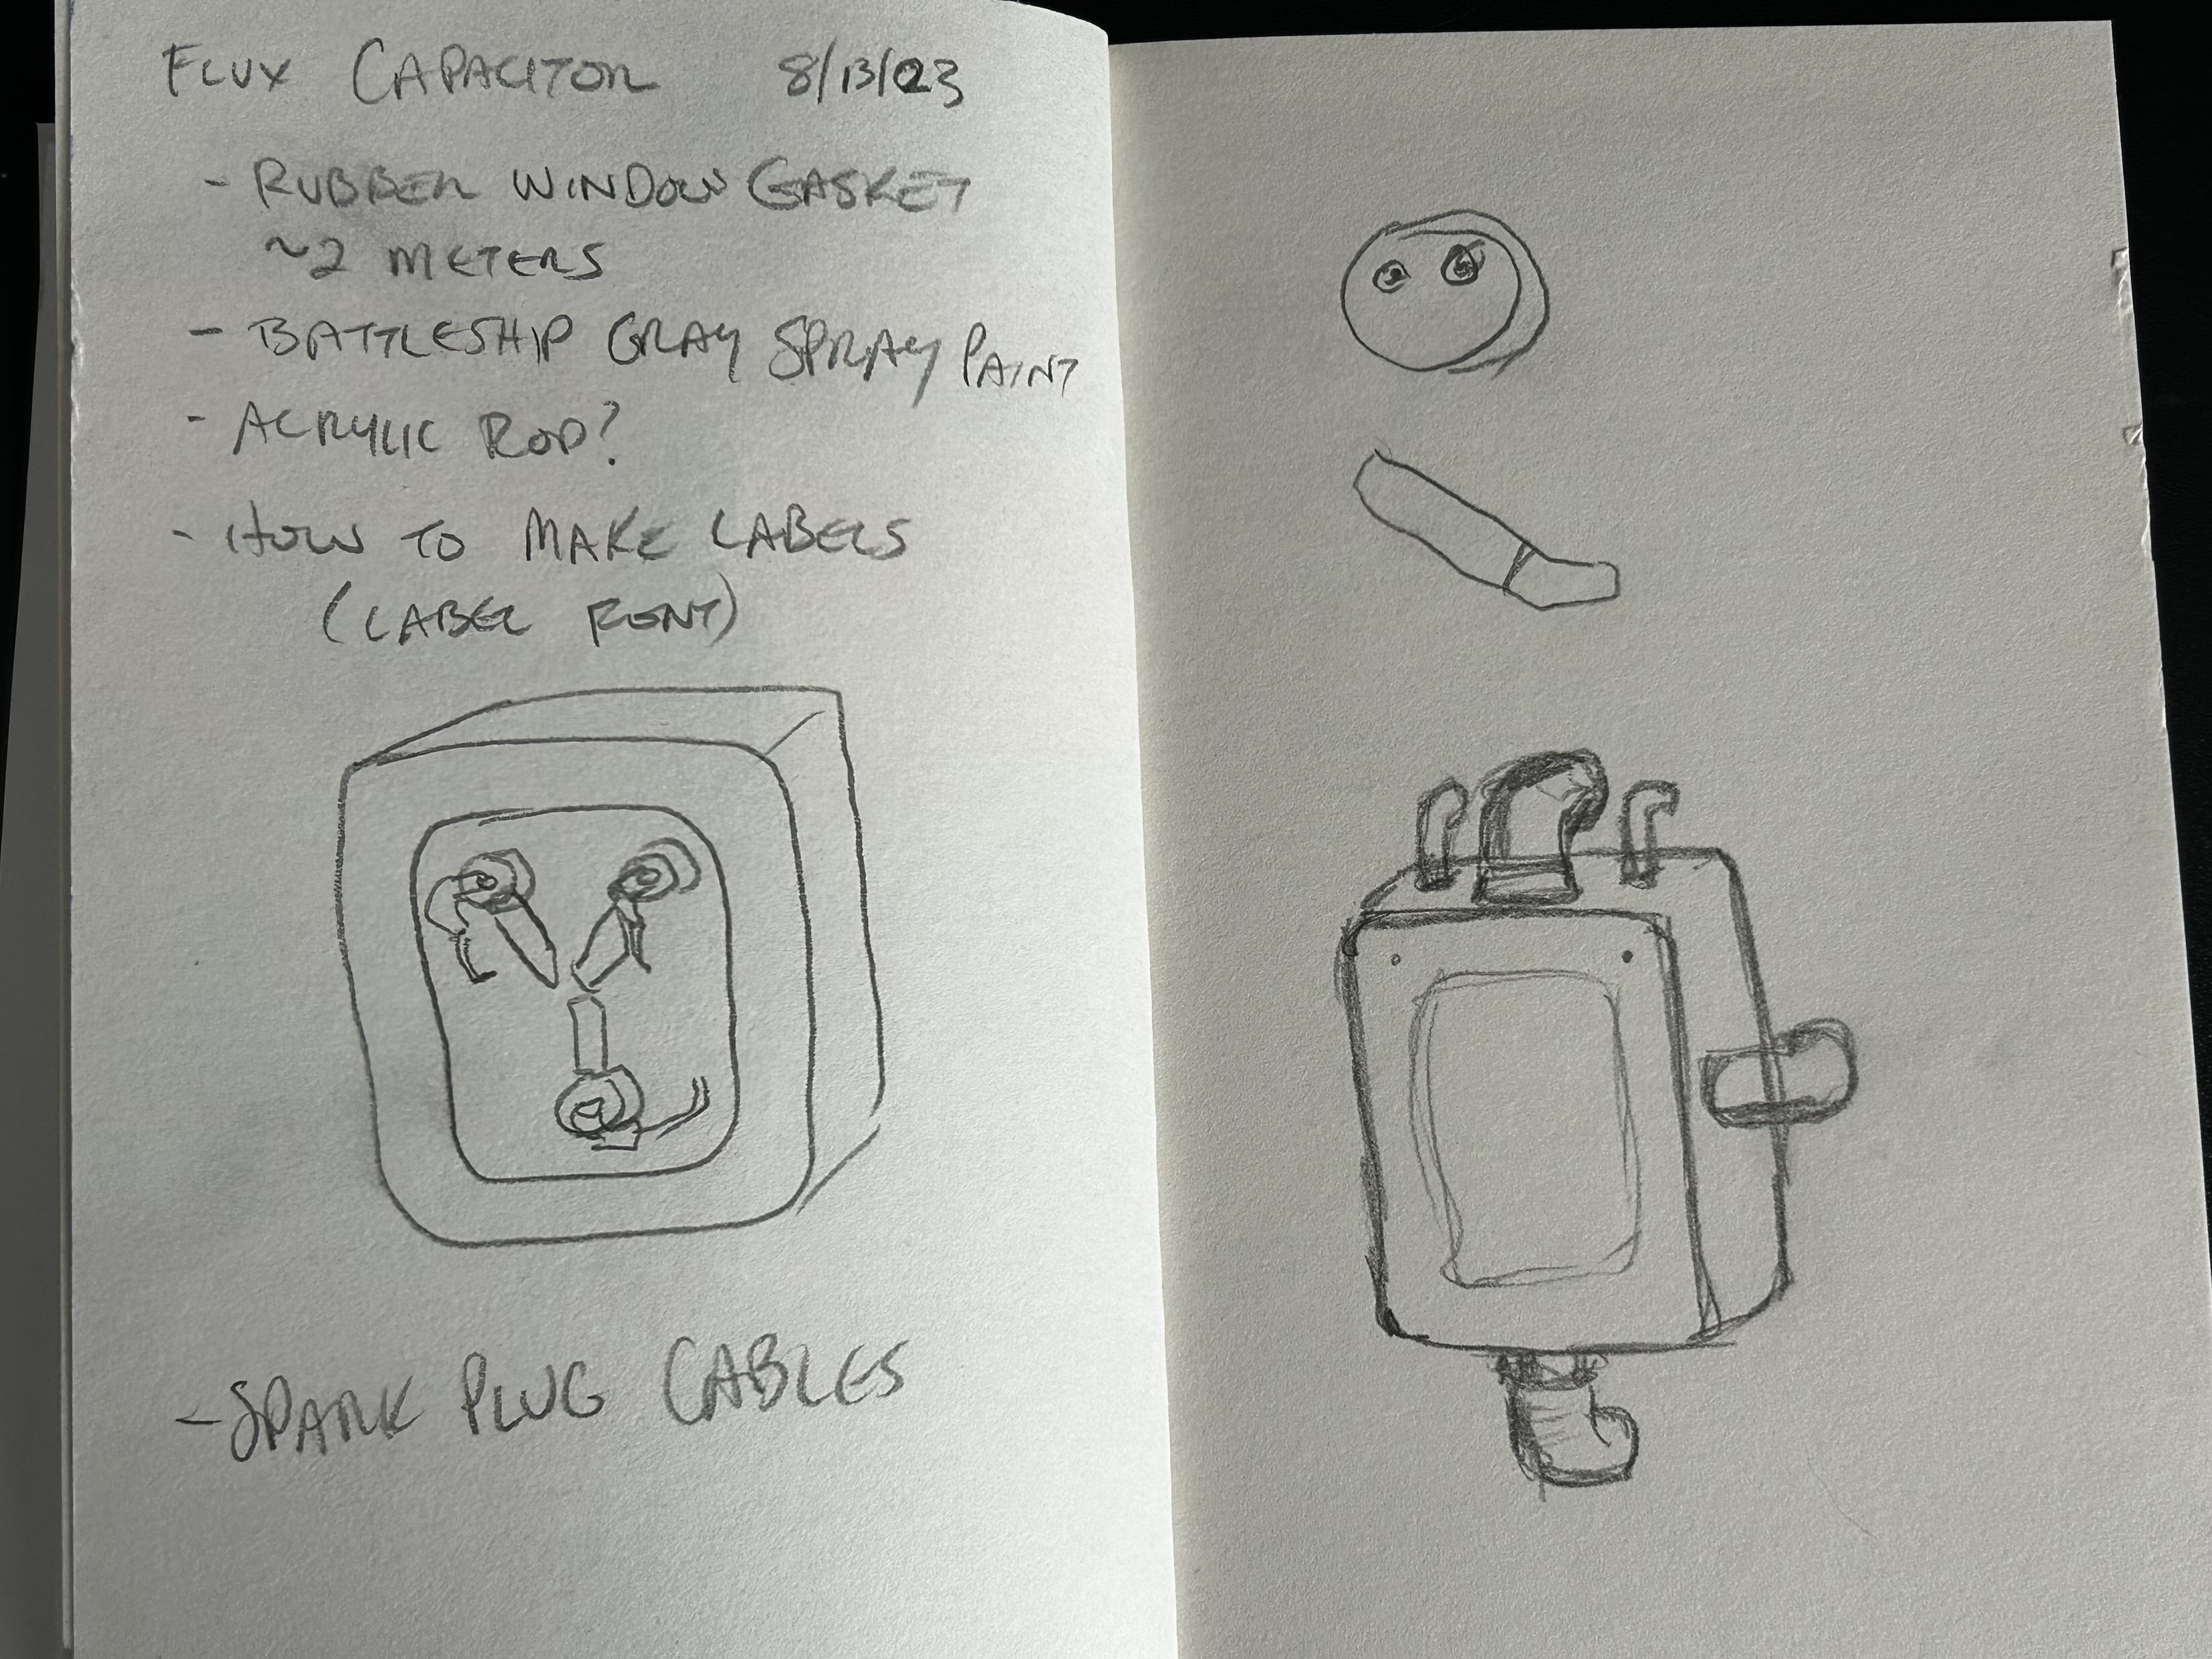 FLUX CAPACITOR 8/13/23
- RUBBER WINDOW GASKET
~2 METERS
- BATTLESHIP GRAY SPRAY PAINT
- ACRYLIC ROD?
- HOW TO MAKE LABELS
(LABEL FONT)
- SPARK PLUG CABLES